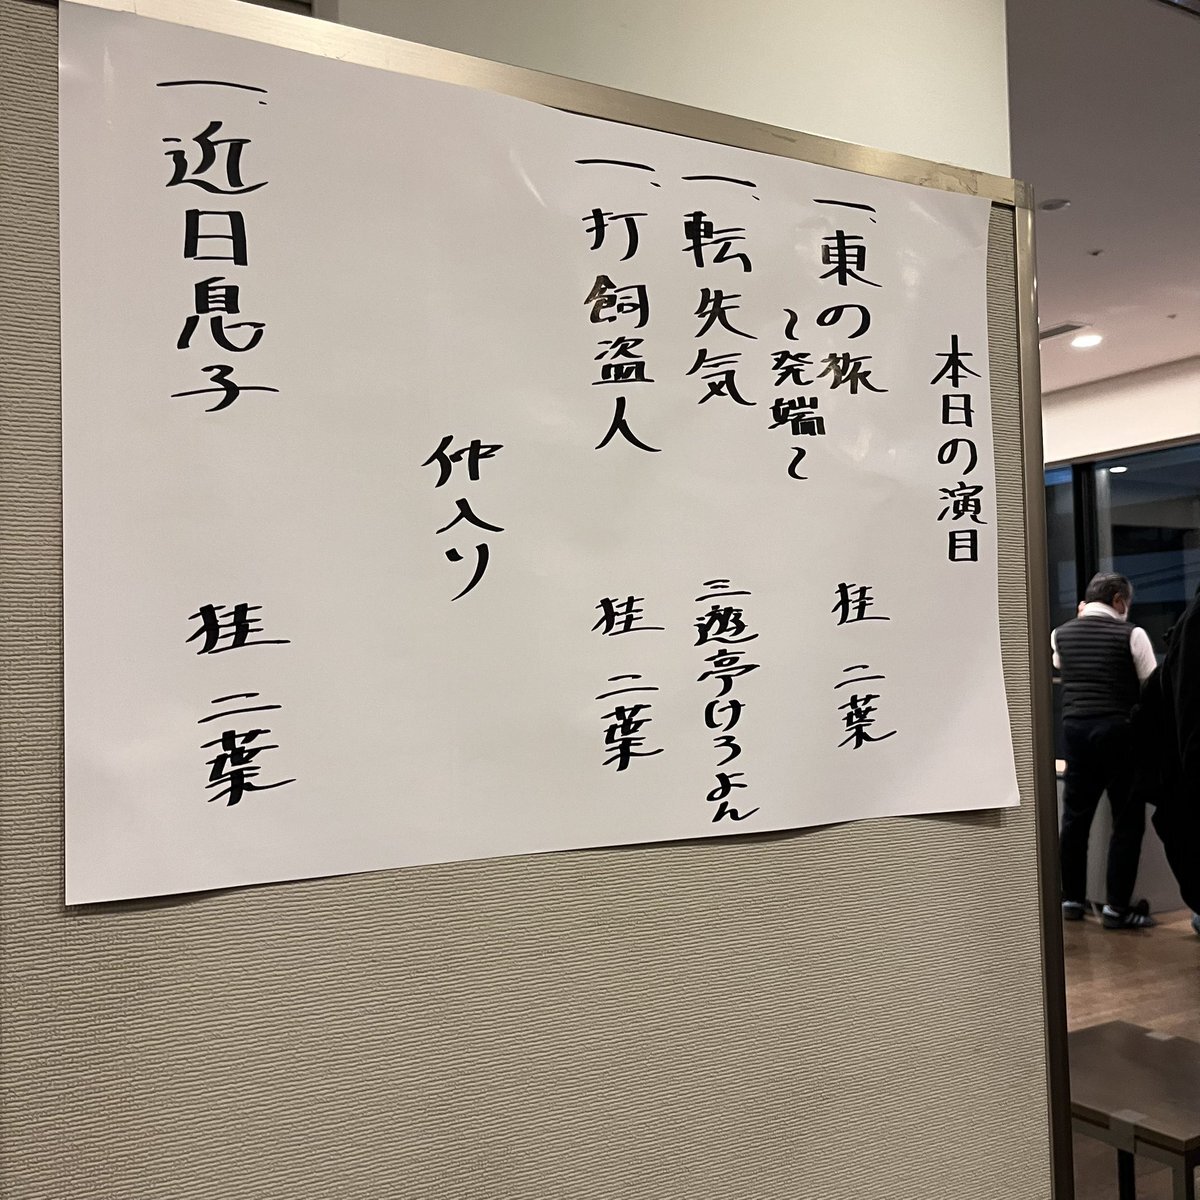 本日の演目
一、東の旅 桂 二葉
〜発端〜
一、転失気 三遊亭けろよん
一、打飼盗人 桂 二葉
仲入り
一、近日息子 桂 二葉